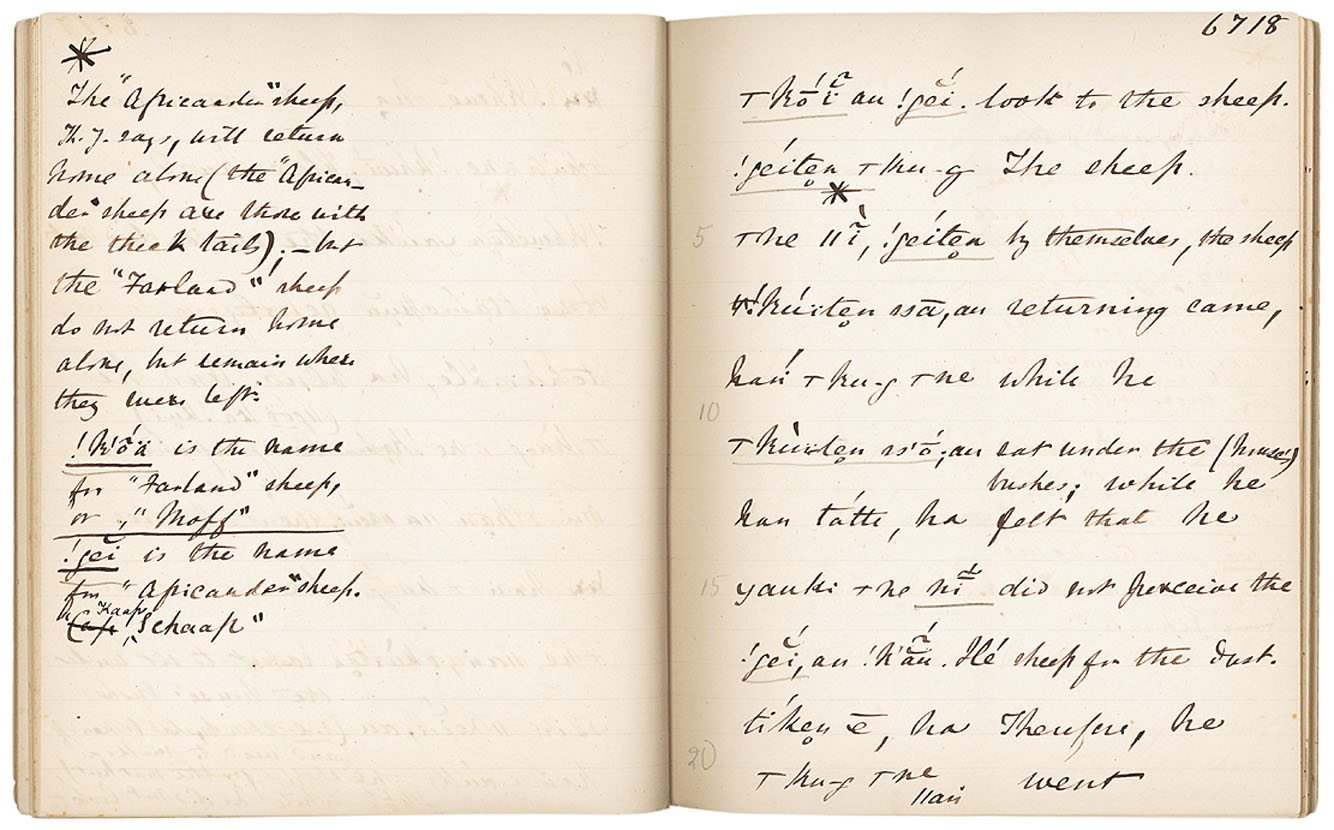 *
The "Africander" sheep,
Th. J. says, will return
home alone (the "African-
der" sheep are those with
the thick tails); – but
the "Farland" sheep
do not return home
alone, but remain where
they were left.
!k'ṓä is the name
for "Farland" sheep,
or, "Moff"
!gĕi is the name
for "Africander" sheep.
"Kaap Schaap"
6718
au !gĕ́i. look to the sheep.
!géitẹn ⊤ku-g The sheep.
*
5
⊤ne !géitẹn by themselves, the sheep
ssā, au returning came,
⊤ku-g ⊤ne while he
10
au sat under the (house's)
bushes; while he
han tátti, ha felt that he
15
yauki ⊤ne did not perceive the
!gĕ́i, au sheep for the dust.
tíkẹn ē, ha Therefore, he
20
⊤ku-g ⊤ne went